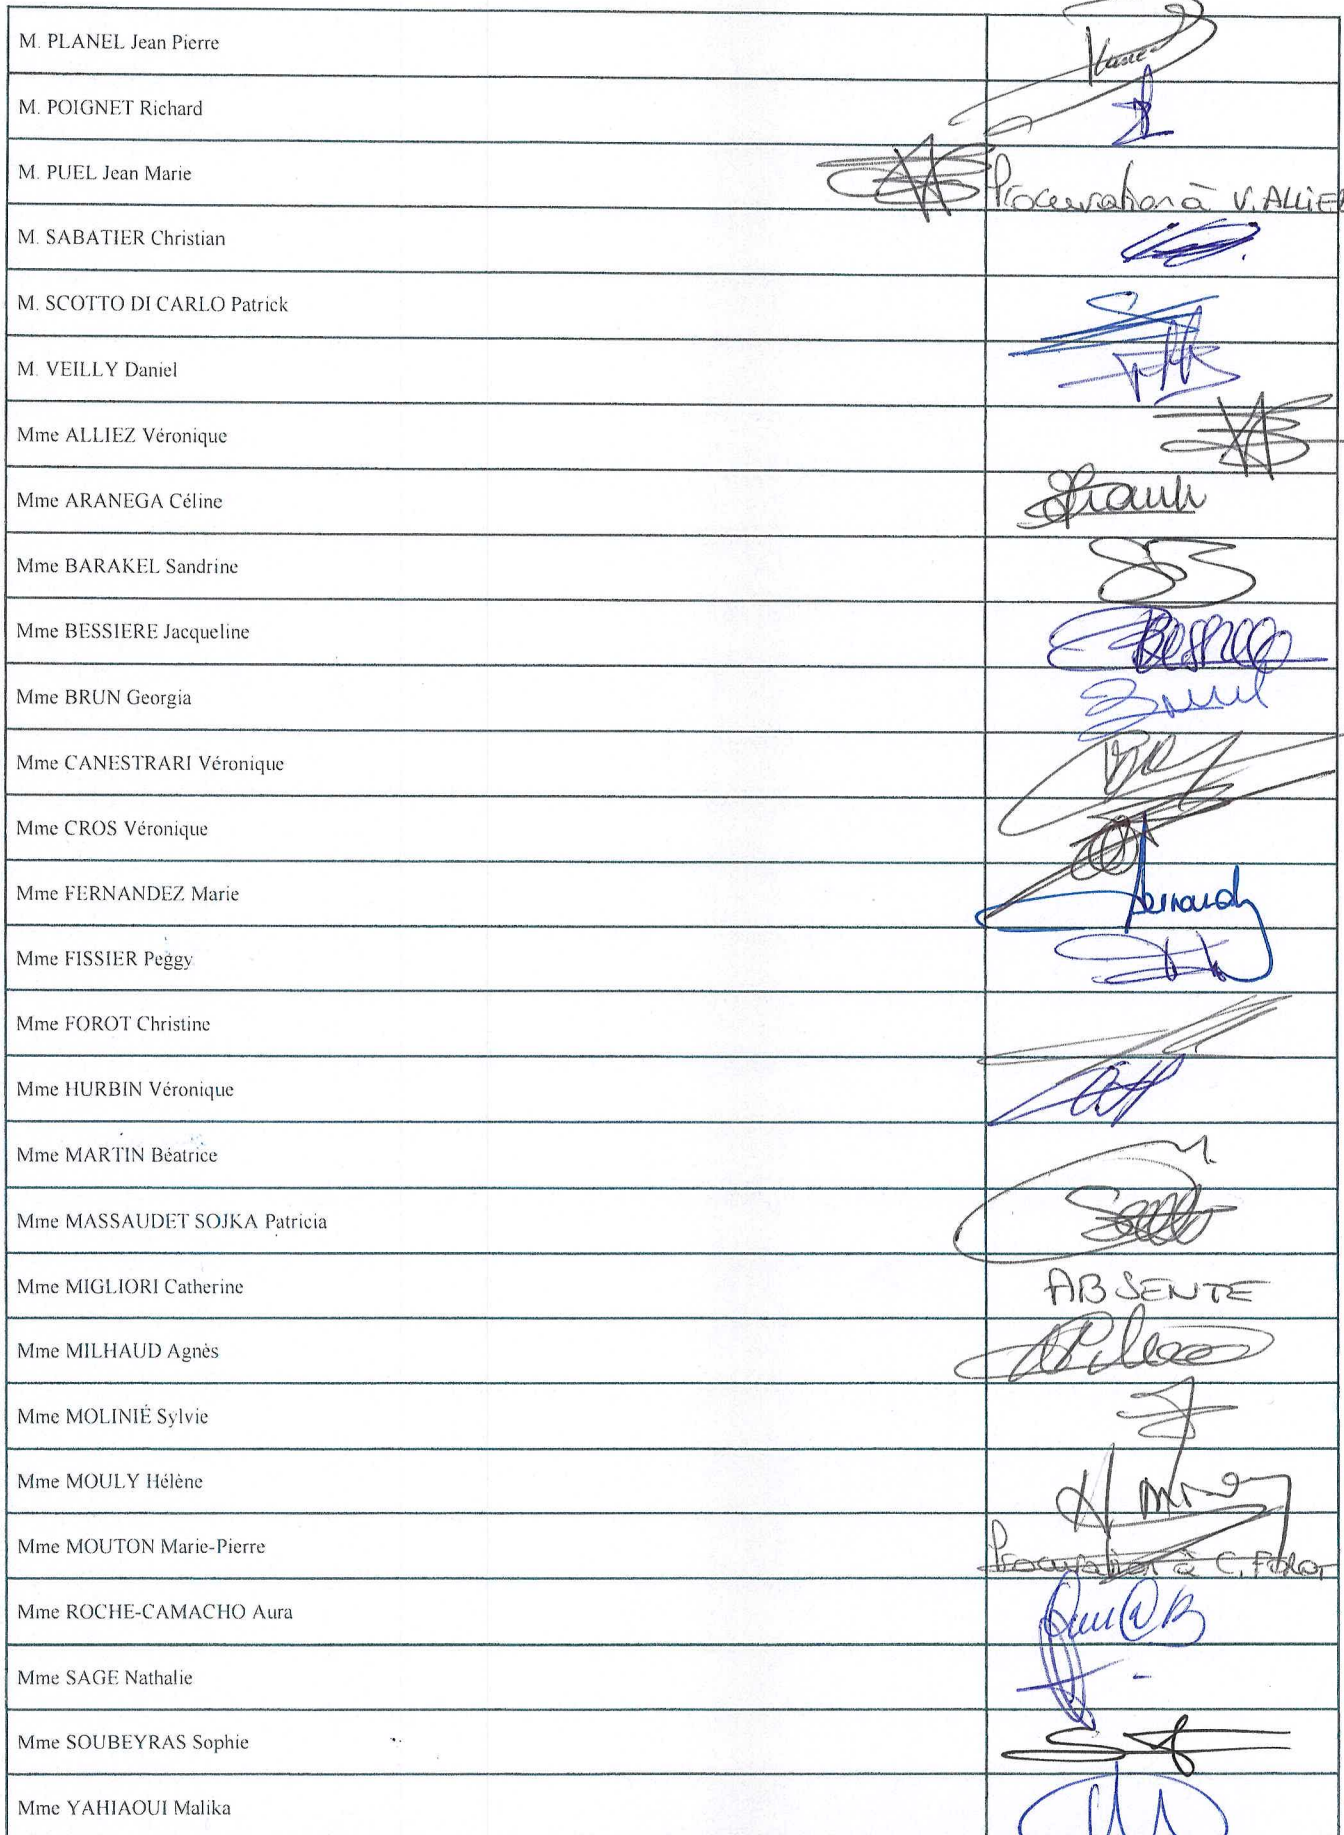 M. PLANEL Jean Pierre
M. POIGNET Richard
M. PUEL Jean Marie
Procuration à V. ALLIE
M. SABATIER Christian
M. SCOTTO DI CARLO Patrick
M. VEILLY Daniel
Mme ALLIEZ Véronique
Mme ARANEGA Céline
Mme BARAKEL Sandrine
Mme BESSIERE Jacqueline
Mme BRUN Georgia
Mme CANESTRARI Véronique
Mme CROS Véronique
Mme FERNANDEZ Marie
Mme FISSIER Peggy
Mme FOROT Christine
Mme HURBIN Véronique
Mme MARTIN Béatrice
Mme MASSAUDET SOJKA Patricia
Mme MIGLIORI Catherine
ABSENTE
Mme MILHAUD Agnès
Mme MOLINIÉ Sylvie
Mme MOULY Hélène
Mme MOUTON Marie-Pierre
Procuration à C. FOROT
Mme ROCHE-CAMACHO Aura
Mme SAGE Nathalie
Mme SOUBEYRAS Sophie
Mme YAHIAOUI Malika